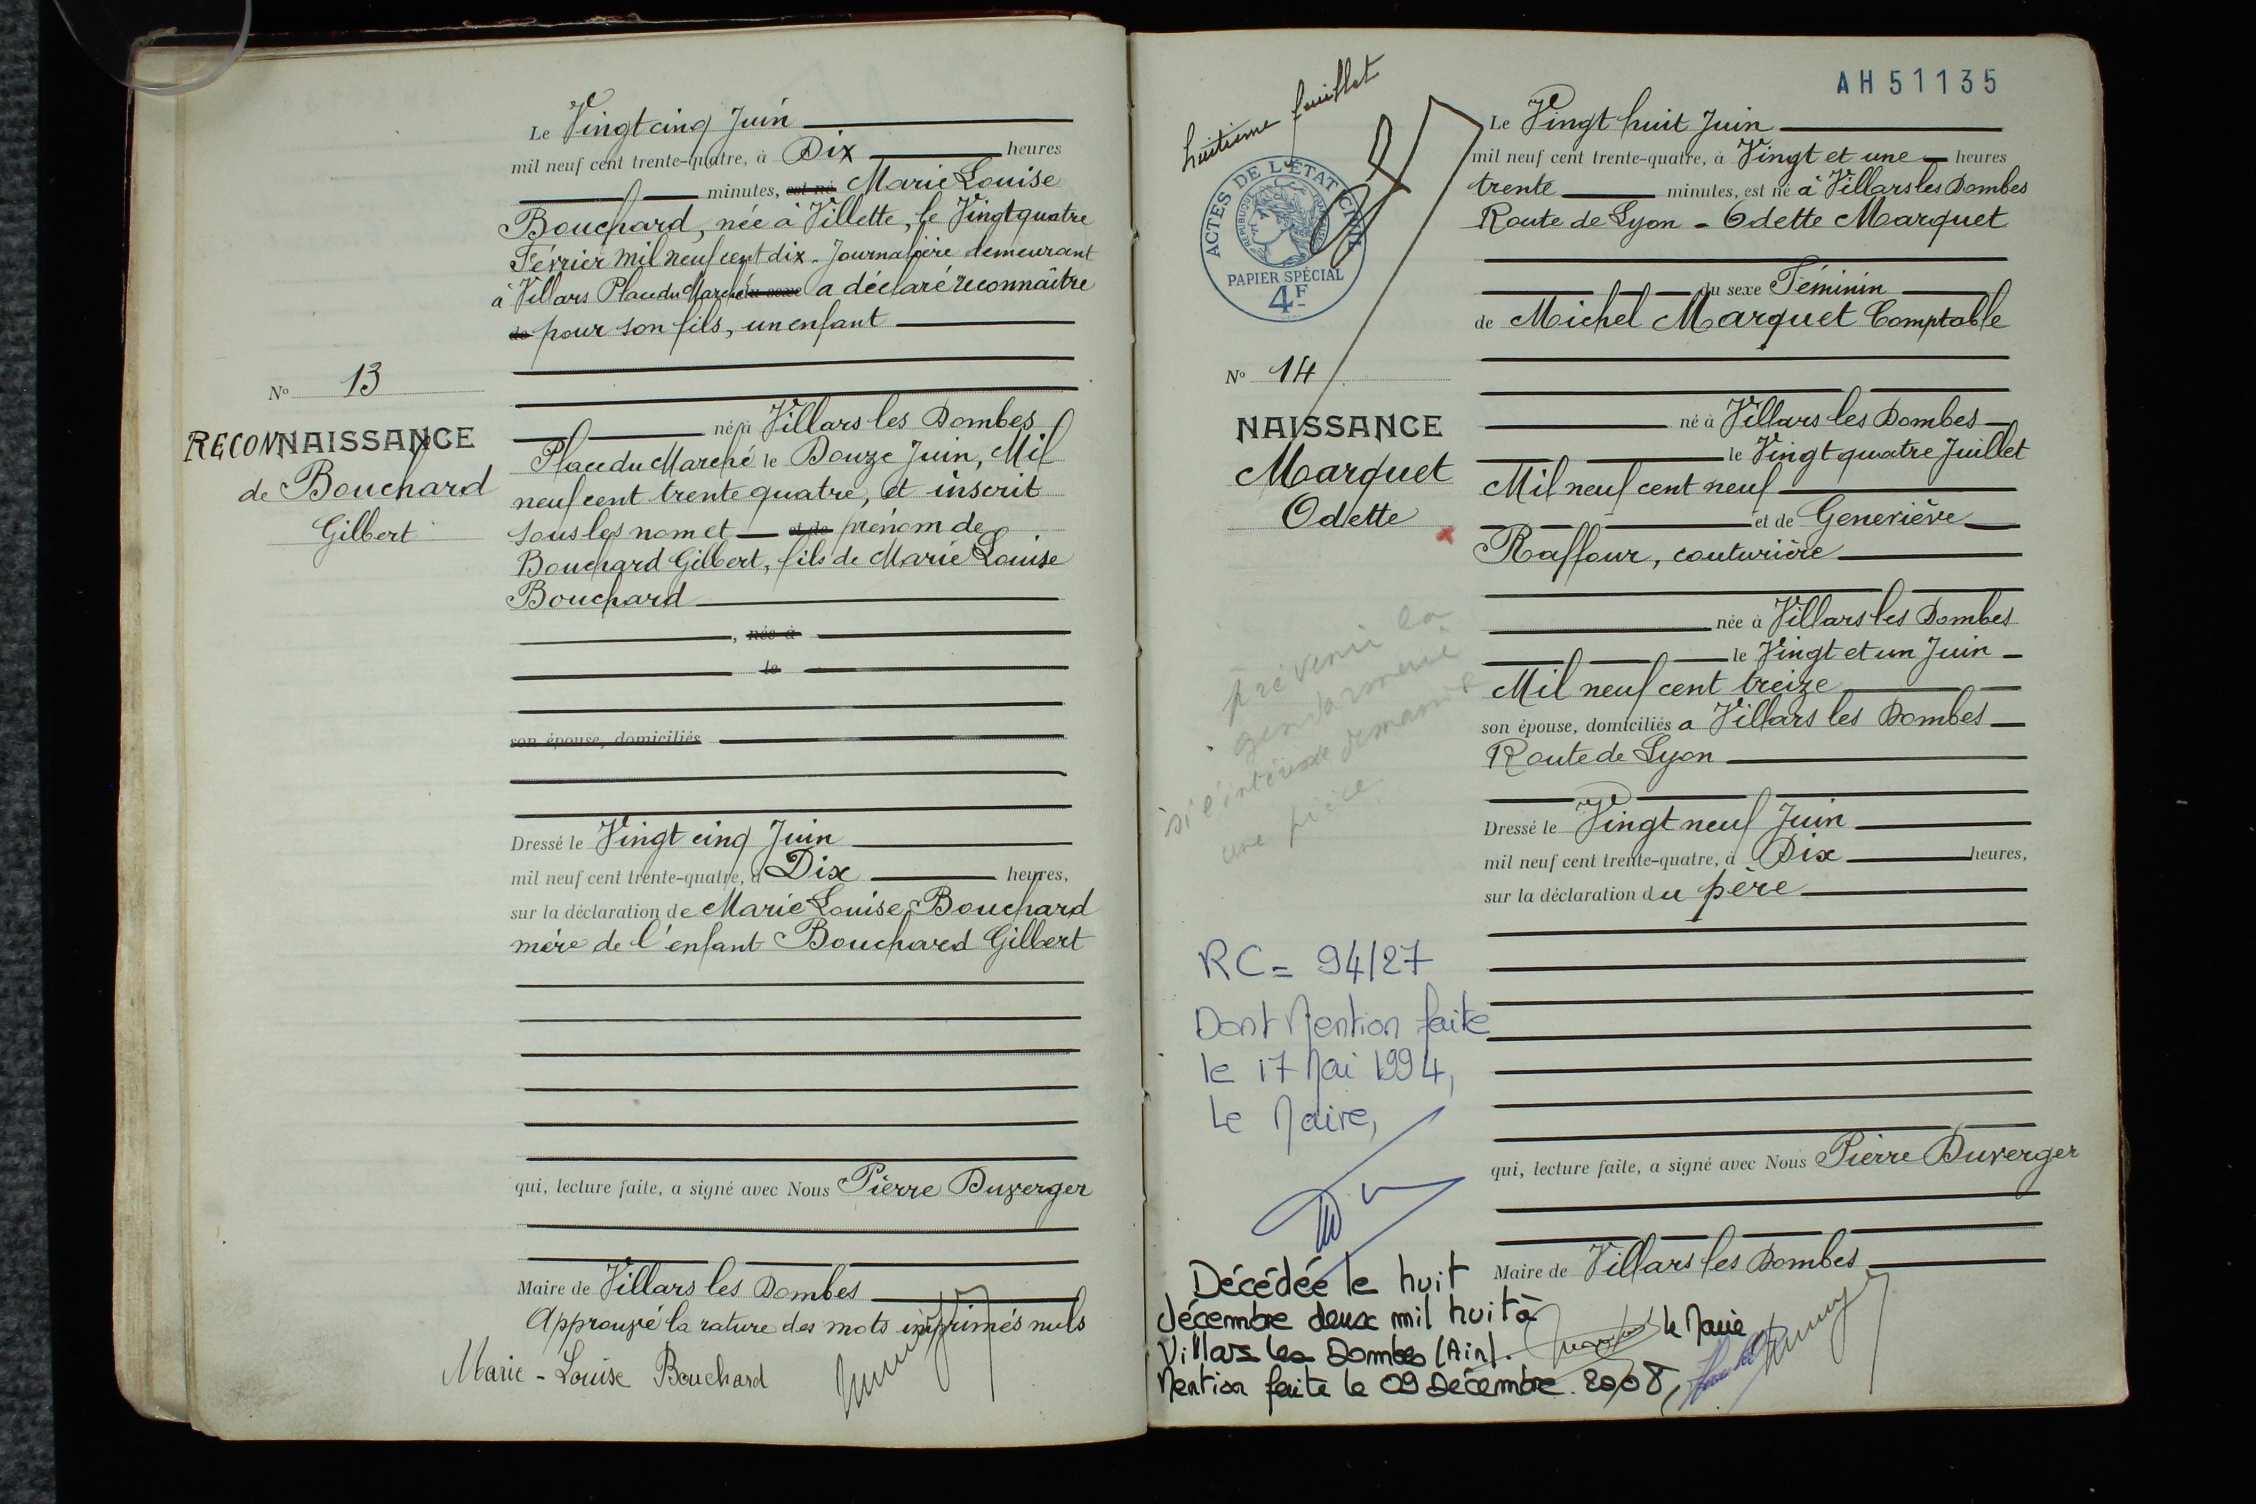 Le Vingt cinq Juin
mil neuf cent trente-quatre, à Dix heures
minutes, est né Marie Louise
Bouchard, née à Villette, le Vingt quatre
Février mil neuf cent dix. Journalière demeurant
à Villars Place du Marché du sexe a déclaré reconnaître
de pour son fils, un enfant
N° 13
RECONNAISSANCE
de Bouchard
Gilbert
né à Villars les Dombes
Place du Marché le Douze Juin, Mil
neuf cent trente quatre, et inscrit
sous les nom et et de prénom de
Bouchard Gilbert, fils de Marie Louise
Bouchard
, née à
le
son épouse, domiciliés
Dressé le Vingt cinq Juin
mil neuf cent trente-quatre, à Dix heures,
sur la déclaration de Marie Louise Bouchard
mère de l'enfant Bouchard Gilbert
qui, lecture faite, a signé avec Nous Pierre Duverger
Maire de Villars les Dombes
Approuvé la rature des mots imprimés nuls
Marie-Louise Bouchard
huitième feuillet
AH51135
ACTES DE L'ÉTAT CIVIL
RÉPUBLIQUE FRANÇAISE
PAPIER SPÉCIAL
4F
Le Vingt huit Juin
mil neuf cent trente-quatre, à Vingt et une heures
trente minutes, est né à Villars les Dombes
Route de Lyon - Odette Marquet
du sexe Féminin
de Michel Marquet Comptable
N° 14
NAISSANCE
Marquet
Odette
né à Villars les Dombes
le Vingt quatre Juillet
Mil neuf cent neuf
et de Geneviève
Raffour, couturière
née à Villars les Dombes
le Vingt et un Juin
Mil neuf cent treize
son épouse, domiciliés a Villars les Dombes
Route de Lyon
prévenir la
gendarmerie
si l'intéressé demande
une pièce
Dressé le Vingt neuf Juin
mil neuf cent trente-quatre, à Dix heures,
sur la déclaration du père
RC = 94/27
Dont Mention faite
le 17 Mai 1994,
Le Maire,
qui, lecture faite, a signé avec Nous Pierre Duverger
Maire de Villars les Dombes
Décédée le huit
décembre deux mil huit à
Villars les Dombes (Ain).
Mention faite le 09 Décembre 2008,
le Maire